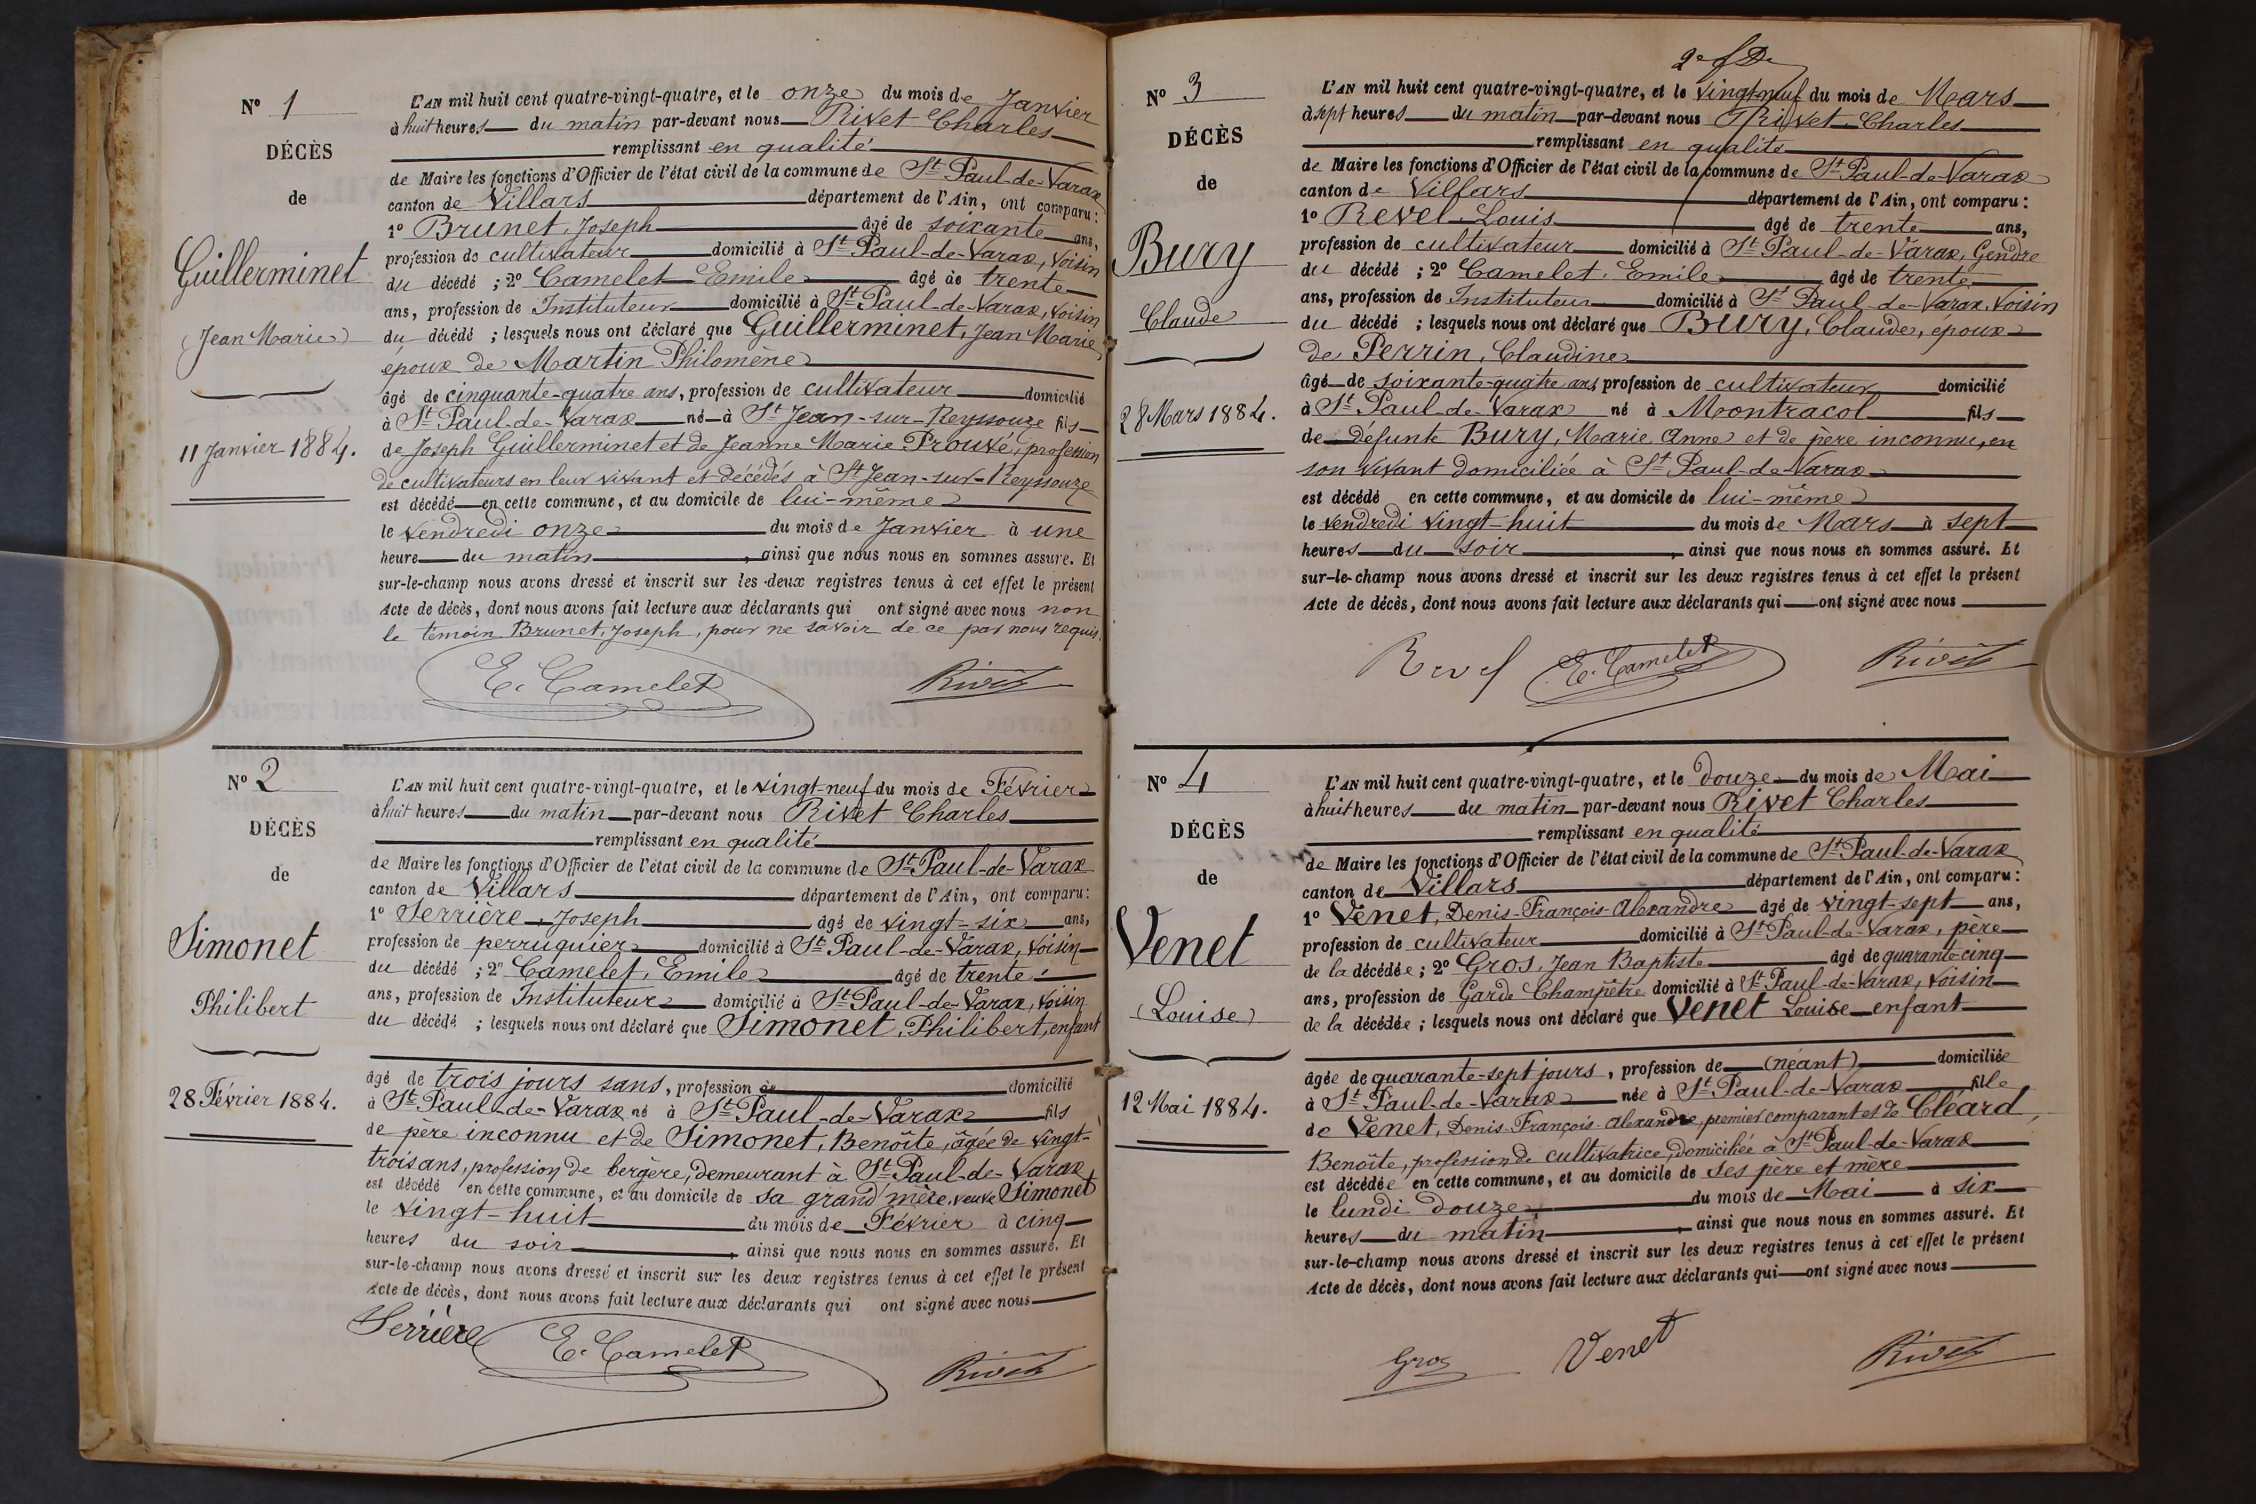 N° 1
DÉCÈS
de
Guillerminet
Jean Marie
11 Janvier 1884.
L'AN mil huit cent quatre-vingt-quatre, et le onze du mois de Janvier
à huit heures du matin par-devant nous Rivet Charles
remplissant en qualité
de Maire les fonctions d'Officier de l'état civil de la commune de St Paul-de-Varax
canton de Villars département de l'Ain, ont comparu :
1° Brunet, Joseph âgé de soixante ans,
profession de cultivateur domicilié à St Paul-de-Varax, Voisin
du décédé ; 2° Camelet Emile âgé de trente
ans, profession de Instituteur domicilié à St Paul-de-Varax, Voisin
du décédé ; lesquels nous ont déclaré que Guillerminet, Jean Marie,
époux de Martin Philomène
âgé de cinquante-quatre ans, profession de cultivateur domicilié
à St Paul-de-Varax né à St Jean-sur-Reyssouze fils
de Joseph Guillerminet et de Jeanne Marie Prouvé, profession
de cultivateurs en leur vivant et décédés à St Jean-sur-Reyssouze
est décédé en cette commune, et au domicile de lui-même
le vendredi onze du mois de Janvier à une
heure du matin, ainsi que nous nous en sommes assuré. Et
sur-le-champ nous avons dressé et inscrit sur les deux registres tenus à cet effet le présent
Acte de décès, dont nous avons fait lecture aux déclarants qui ont signé avec nous non
le témoin Brunet, Joseph, pour ne savoir de ce par nous requis.
E. Camelet Rivet
N° 2
DÉCÈS
de
Simonet
Philibert
28 Février 1884.
L'AN mil huit cent quatre-vingt-quatre, et le vingt-neuf du mois de Février
à huit heures du matin par-devant nous Rivet Charles
remplissant en qualité
de Maire les fonctions d'Officier de l'état civil de la commune de St Paul-de-Varax
canton de Villars département de l'Ain, ont comparu :
1° Serrière, Joseph âgé de vingt-six ans,
profession de perruquier domicilié à St Paul-de-Varax, Voisin
du décédé ; 2° Camelet, Emile âgé de trente
ans, profession de Instituteur domicilié à St Paul-de-Varax, Voisin
du décédé ; lesquels nous ont déclaré que Simonet, Philibert, enfant
âgé de trois jours sans, profession de domicilié
à St Paul-de-Varax né à St Paul-de-Varax fils
de père inconnu et de Simonet, Benoîte, âgée de vingt-
trois ans, profession de bergère, demeurant à St Paul-de-Varax
est décédé en cette commune, et au domicile de sa grand'mère, veuve Simonet
le vingt-huit du mois de Février à cinq
heures du soir, ainsi que nous nous en sommes assuré. Et
sur-le-champ nous avons dressé et inscrit sur les deux registres tenus à cet effet le présent
Acte de décès, dont nous avons fait lecture aux déclarants qui ont signé avec nous
Serrière E. Camelet Rivet
N° 3
DÉCÈS
de
Bury
Claude
28 Mars 1884.
L'AN mil huit cent quatre-vingt-quatre, et le vingt-neuf du mois de Mars
à sept heures du matin par-devant nous Rivet Charles
remplissant en qualité
de Maire les fonctions d'Officier de l'état civil de la commune de St Paul-de-Varax
canton de Villars département de l'Ain, ont comparu :
1° Revel Louis âgé de trente ans,
profession de cultivateur domicilié à St Paul-de-Varax, Gendre
du décédé ; 2° Camelet, Emile âgé de trente
ans, profession de Instituteur domicilié à St Paul-de-Varax, Voisin
du décédé ; lesquels nous ont déclaré que Bury, Claude, époux
de Perrin, Claudine
âgé de soixante-quatre ans, profession de cultivateur domicilié
à St Paul-de-Varax né à Montracol fils
de défunte Bury, Marie Anne et de père inconnu, en
son vivant domiciliée à St Paul-de-Varax
est décédé en cette commune, et au domicile de lui-même
le vendredi vingt-huit du mois de Mars à sept
heures du soir, ainsi que nous nous en sommes assuré. Et
sur-le-champ nous avons dressé et inscrit sur les deux registres tenus à cet effet le présent
Acte de décès, dont nous avons fait lecture aux déclarants qui ont signé avec nous
Revel E. Camelet Rivet
N° 4
DÉCÈS
de
Venet
Louise
12 Mai 1884.
L'AN mil huit cent quatre-vingt-quatre, et le douze du mois de Mai
à huit heures du matin par-devant nous Rivet Charles
remplissant en qualité
de Maire les fonctions d'Officier de l'état civil de la commune de St Paul-de-Varax
canton de Villars département de l'Ain, ont comparu :
1° Venet, Denis-François-Alexandre âgé de vingt-sept ans,
profession de cultivateur domicilié à St Paul-de-Varax, père
de la décédée ; 2° Gros, Jean Baptiste âgé de quarante-cinq
ans, profession de Garde Champêtre domicilié à St Paul-de-Varax, Voisin
de la décédée ; lesquels nous ont déclaré que Venet Louise enfant
âgée de quarante-sept jours, profession de (néant) domiciliée
à St Paul-de-Varax née à St Paul-de-Varax fille
de Venet, Denis-François-Alexandre, premier comparant et de Cléard,
Benoîte, profession de cultivatrice, domiciliée à St Paul-de-Varax
est décédée en cette commune, et au domicile de ses père et mère
le lundi douze du mois de Mai à six
heures du matin, ainsi que nous nous en sommes assuré. Et
sur-le-champ nous avons dressé et inscrit sur les deux registres tenus à cet effet le présent
Acte de décès, dont nous avons fait lecture aux déclarants qui ont signé avec nous
Gros Venet Rivet